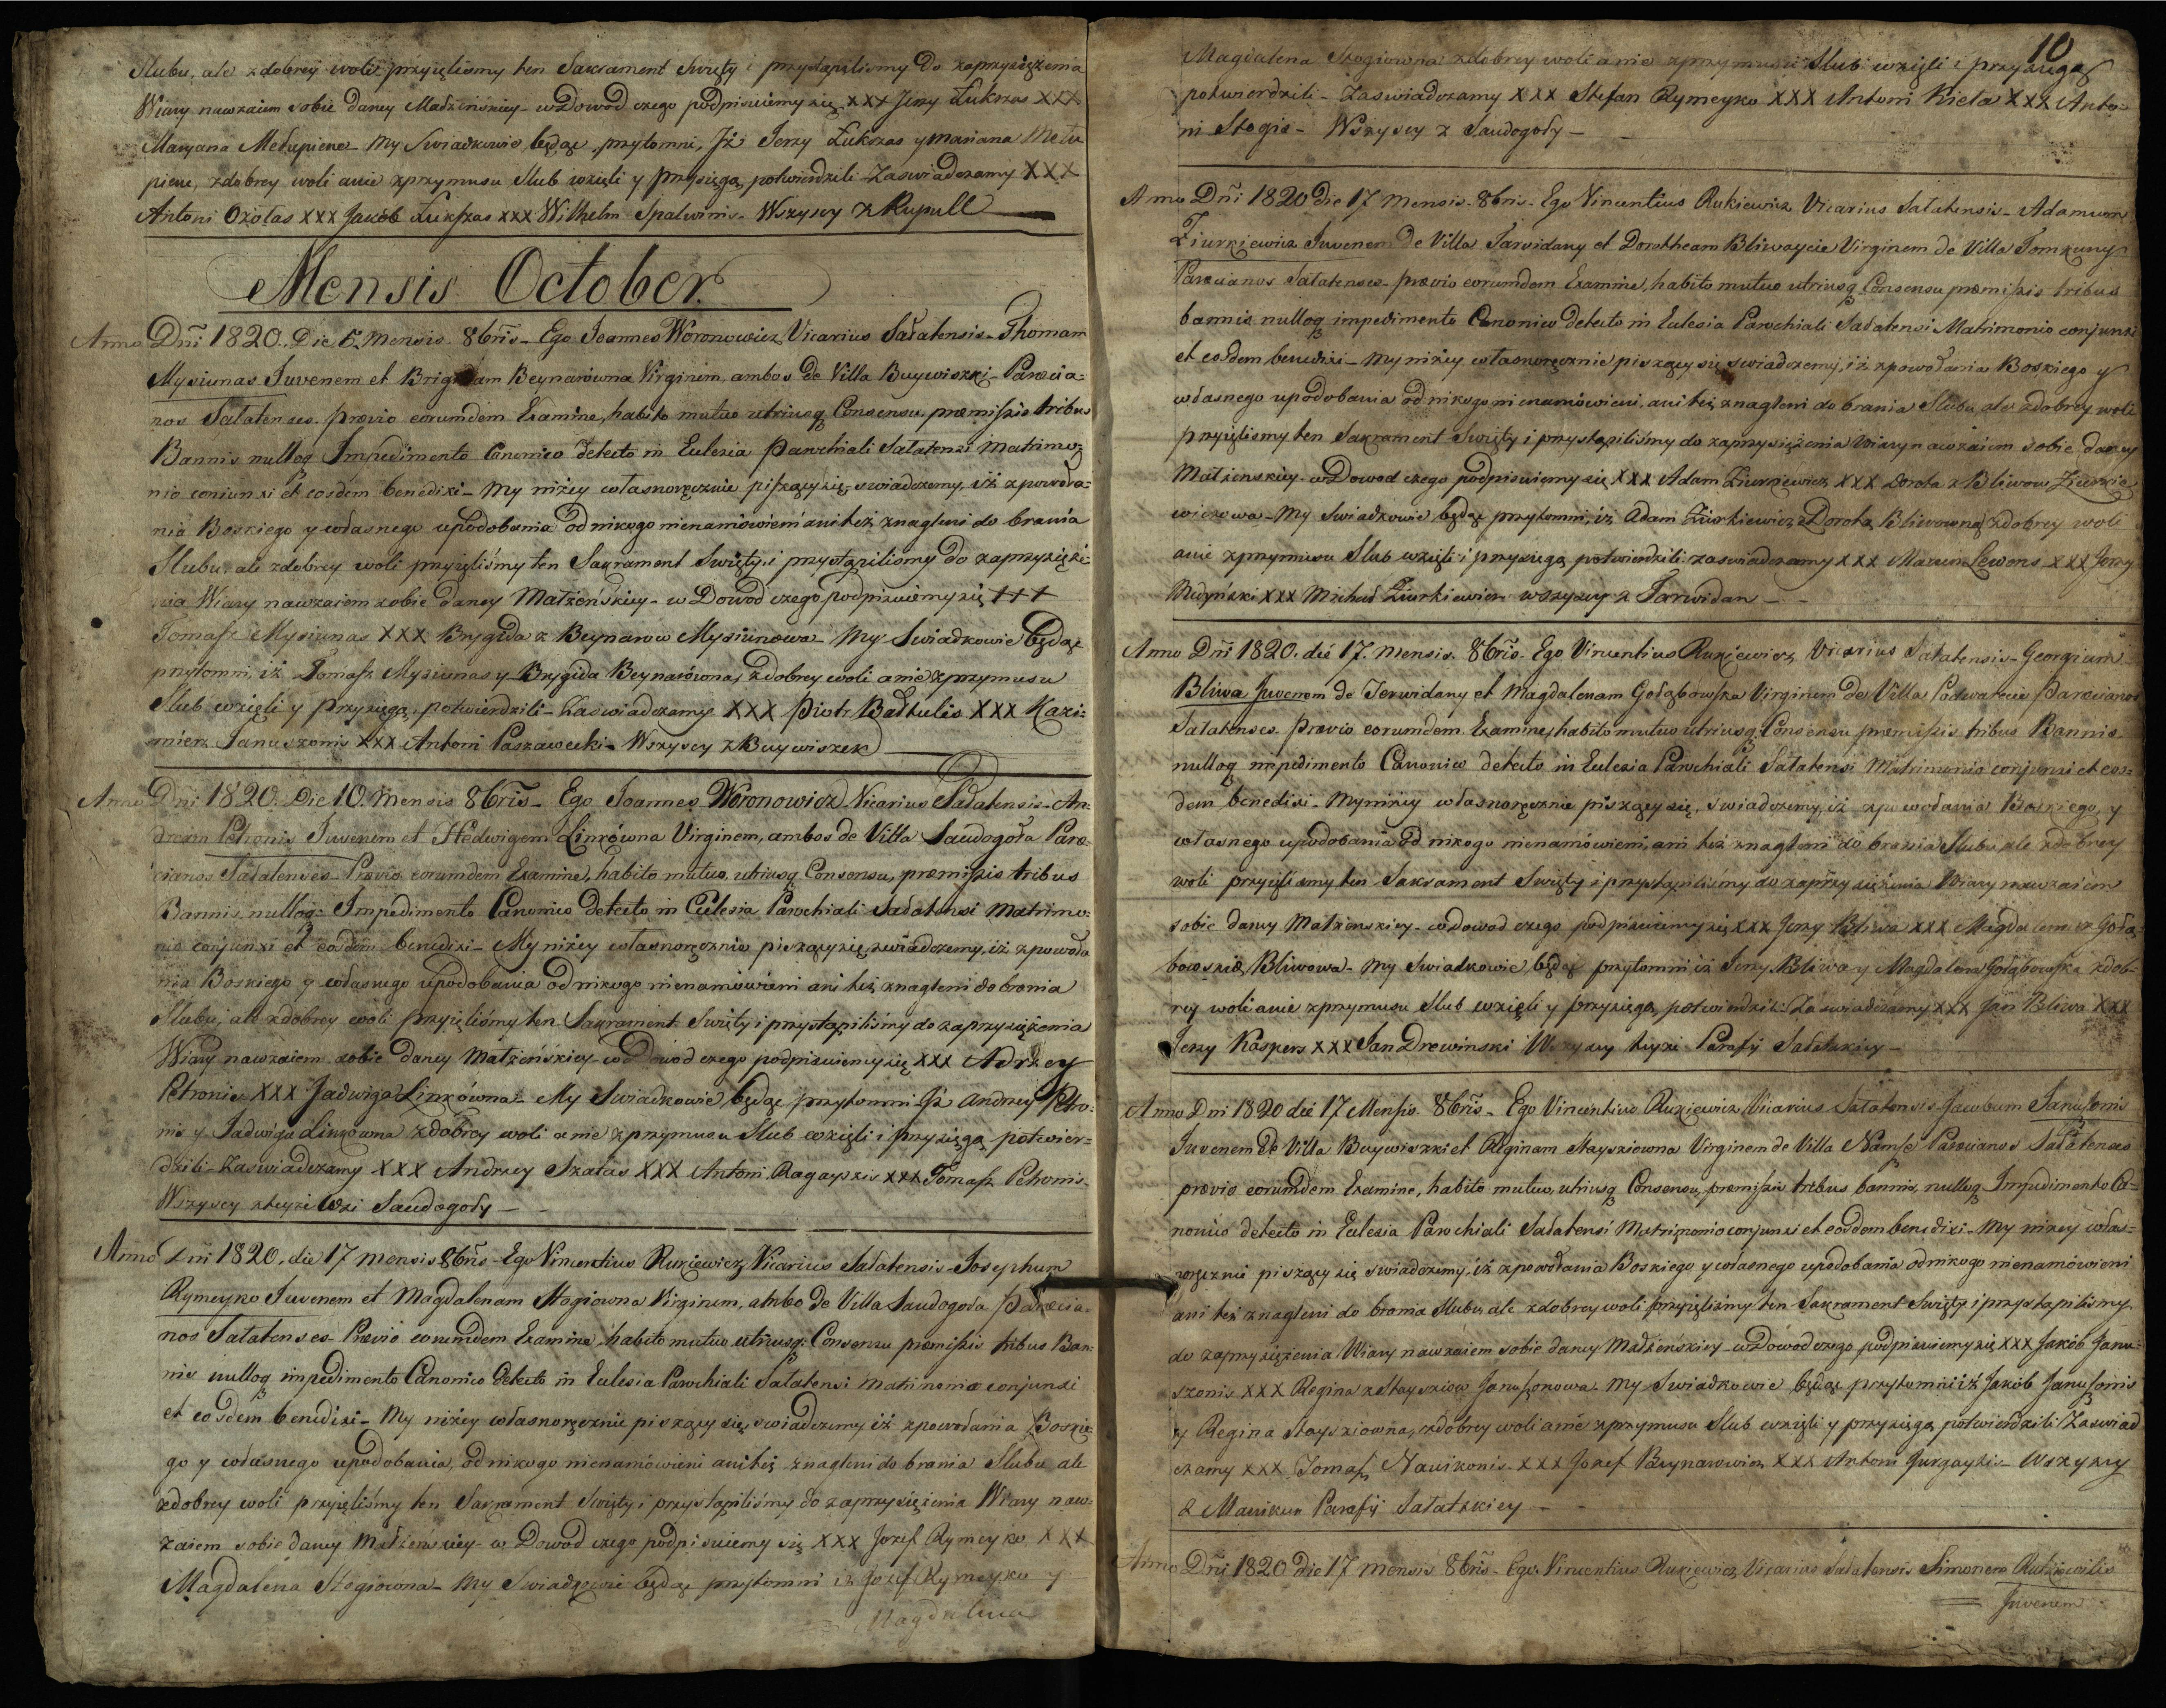 Slubu, ale zdobrey woli przyięlismy ten Sakrament Swięty i przystąpilismy do zaprzysiężenia
Wiary nawzaiem sobie daney Małżeńskiey - w Dowod czego podpisuiemy się XXX Jerzy Łukszas XXX
Maryana Mełupiene - My Swiadkowie będąc przytomni, Jż Jerzy Łukszas y Mariana Mełu
piene, zdobrey woli anie zprzymusu Slub wzięli y przysięgą potwierdzili - Zaswiadczamy XXX
Antoni Ozołas XXX Jakób Łukszas XXX Wilhelm Spalwinis - Wszyscy z Rupull
Mensis October
Anno Dni 1820. Die 5. Mensis 8bris - Ego Joannes Woronowicz Vicarius Sałatensis - Thomam
Mysiunas Juvenem et Brigidam Beynarówna Virginem, ambos de Villa Buywiszki - Paræcia-
nos Salatenses. prævio eorumdem Examine, habito mutuo utriusq Consensu præmissis tribus
Bannis nulloq Impedimento Canonico detecto in Eclesia Parochiali Salatensi Matrimo-
nio coniunxi et eosdem benedixi - My niżey własnoręcznie piszący się swiadczemy, iż zpowoła-
nia Boskiego y własnego upodobania od nikogo nienamówieni ani też znagleni do brania
Slubu, ale zdobrey woli przyięliśmy ten Sakrament Swięty i przystąpilismy do zaprzysięże-
nia Wiary nawzaiem sobie daney Małżeńskiey - w Dowod czego podpisuiemy się +++
Tomasz Mysiunas XXX Brygida z Beynarow Mysiunowa - My Swiadkowie będąc
przytomni, iż Tomasz Mysiunas y Brygida Beynarówna, zdobrey woli anie zprzymusu
Slub wzięli y przysięgą potwierdzili - Zaswiadczamy XXX Piotr Bałtulis XXX Kazi-
mierz Januszonis XXX Antoni Paszawecki - Wszyscy z Buywiszek
Anno Dni 1820. Die 10. Mensis 8bris - Ego Joannes Woronowicz Vicarius Sałatensis - An-
dream Petronis Juvenem et Hedwigem Linkówna Virginem, ambos de Villa Saudogoła Paræ-
cianos Sałatenses - Prævio eorumdem Examine, habito mutuo utriusq Consensu, præmissis tribus
Bannis nulloq Impedimento Canonico detecto in Eclesia Parochiali Sałatensi Matrimo-
nio conjunxi et eosdem benedixi - My niżey własnoręcznie piszący się, swiadczemy, iż zpowoła
nia Boskiego y własnego upodobania od nikogo nienamówieni ani też znagleni do brania
Slubu, ale zdobrey woli przyięliśmy ten Sakrament Swięty i przystąpiliśmy do zaprzysiężenia
Wiary nawzaiem sobie daney Małżeńskiey - w Dowod czego podpisuiemy się XXX Adrzey
Petronis XXX Jadwiga Linkówna - My Swiadkowie będąc przytomni Jż Andrzey Petro-
nis y Jadwiga Linkowna zdobrey woli anie zprzymusu Slub wzięli i przysięgą potwier-
dzili - Zaswiadczamy XXX Andrzey Szałas XXX Antoni Ragayszis XXX Tomasz Petronis -
Wszyscy zteyże Wsi Saudogoły -
Anno Dni 1820. die 17 mensis 8bris - Ego Vincentius Rukiewicz Vicarius Sałatensis - Josephum
Rymeyko Juvenem et Magdalenam Stogiowna Virginem, ambo de Villa Saudogoła Paræcia-
nos Sałatenses - Prævio eorumdem Examine, habito mutuo utriusq Consensu præmissis tribus Ban-
nis nulloq impedimento Canonico detecto in Eclesia Parochiali Sałatensi Matrimonio conjunxi
et eosdem benedixi - My niżey własnoręcznie piszący się, swiadczemy iż zpowołania Boskie-
go y własnego upodobania, od nikogo nienamówieni ani też znagleni do brania Slubu ale
zdobrey woli przyięliśmy ten Sakrament Swięty i przystąpiliśmy do zaprzysiężenia Wiary naw-
zaiem sobie daney Małżeńskiey - w Dowod czego podpisuiemy się XXX Jozef Rymeyko XXX
Magdalena Stogiowna - My Swiadkowie będąc przytomni iż Jozef Rymeyko y
Magdalena
10
Magdalena Stogiowna zdobrey woli anie zprzymusu Slub wzięli i przysięgą
potwierdzili - Zaswiadczamy XXX Stefan Rymeyko XXX Antoni Kieła XXX Anto-
ni Stogis - Wszyscy z Saudogoły -
Anno Dni 1820 Die 17 Mensis 8bris - Ego Vincentius Rukiewicz Vicarius Sałatensis - Adamum
Ziurkiewicz Juvenem de Villa Jarwidany et Dorotheam Bliwaycie Virginem de Villa Tomkuny
Paræcianos Sałatenses - prævio eorumdem Examine, habito mutuo utriusq Consensu præmissis tribus
bannis nulloq impedimento Canonico detecto in Eclesia Parochiali Sałatensi Matrimonio conjunxi
et eosdem benedixi - My niżey własnoręcznie piszący się swiadczemy, iż zpowołania Boskiego y
własnego upodobania od nikogo nienamówieni, ani też znagleni do brania Slubu, ale zdobrey woli
przyięlismy ten Sakrament Swięty i przystąpiliśmy do zaprzysiężenia Wiary nawzaiem sobie daney
Małżenskiey - w Dowod czego podpisuiemy się XXX Adam Ziurkiewicz XXX Dorota z Bliwow Ziurkie
wiczowa - My Swiadkowie będąc przytomni, iż Adam Ziurkiewicz z Dorotą Bliwowną zdobrey woli
anie zprzymusu Slub wzięli i przysięgą potwierdzili zaswiadczamy XXX Marcin Lewons XXX Jerzy
XXX Michał Ziurkiewicz wszyscy z Jarwidan -
Anno Dni 1820. die 17. Mensis. 8bris. Ego Vincentius Rukiewicz Vicarius Sałatensis - Georgium
Bliwa Juvenem de Jerwidany et Magdalenam Gołąbowska Virginem de Villa Paræcianos
Sałatenses. Prævio eorumdem Examine, habito mutuo utriusq Consensu præmissis tribus Bannis
nulloq impedimento Canonico detecto in Eclesia Parochiali Sałatensi Matrimonio conjunxi et eos-
dem benedixi - My niżey własnoręcznie piszący się, swiadczemy, iż zpowołania Boskiego, y
własnego upodobania od nikogo nienamówieni, ani też znagleni do brania Slubu ale zdobrey
woli przyięlismy ten Sakrament Swięty i przystąpiliśmy do zaprzysiężenia Wiary nawzaiem
sobie daney Małżenskiey - w Dowod czego podpisuiemy się XXX Jerzy Bliwa XXX Magdalena z Gołą-
bowskich Bliwowa - My Swiadkowie będąc przytomni iż Jerzy Bliwa y Magdalena Gołąbowska zdob-
rey woli anie zprzymusu Slub wzięli y przysięgą potwierdzili Zaswiadczamy XXX Jan Bliwa XXX
Jerzy Kaspers XXX Jan Drewinski Wszyscy teyże Parafij Sałatskiey -
Anno Dni 1820 die 17 Mensis. 8bris - Ego Vincentius Rukiewicz Vicarius Sałatensis Jacobum Januszonis
Juvenem de Villa Buywiszki et Reginam Stayszıowna Virginem de Villa Paræcianos Sałatenses
prævio eorumdem Examine, habito mutuo, utriusq Consensu, præmissis tribus bannis, nulloq Impedimento Ca-
nonico detecto in Eclesia Parochiali Sałatensi Matrimonio conjunxi et eosdem benedixi - My niżey włas-
noręcznie piszący się swiadczemy, iż zpowołania Boskiego y własnego upodobania od nikogo nienamówieni
ani też znagleni do brania Slubu, ale zdobrey woli przyięliśmy ten Sakrament Swięty i przystąpilismy
do zaprzysiężenia Wiary nawzaiem sobie daney Małżeńskiey - w Dowod czego podpisuiemy się XXX Jakób Janu-
szonis XXX Regina z Stayszıow Januszonowa. My Swiadkowie będąc przytomni iż Jakób Januszonis
y Regina Stayszıowna, zdobrey woli anie zprzymusu Slub wzięli y przysięgą potwierdzili Zaswiad
czamy XXX Tomasz Nawikonis - XXX Jozef Beynarowicz XXX Antoni Jurgayzis - Wszyscy
z Manikun Parafij Sałatskiey -
Anno Dni 1820 Die 17 Mensis 8bris - Ego Vincentius Rukiewicz Vicarius Sałatensis Simonem
Juvenem